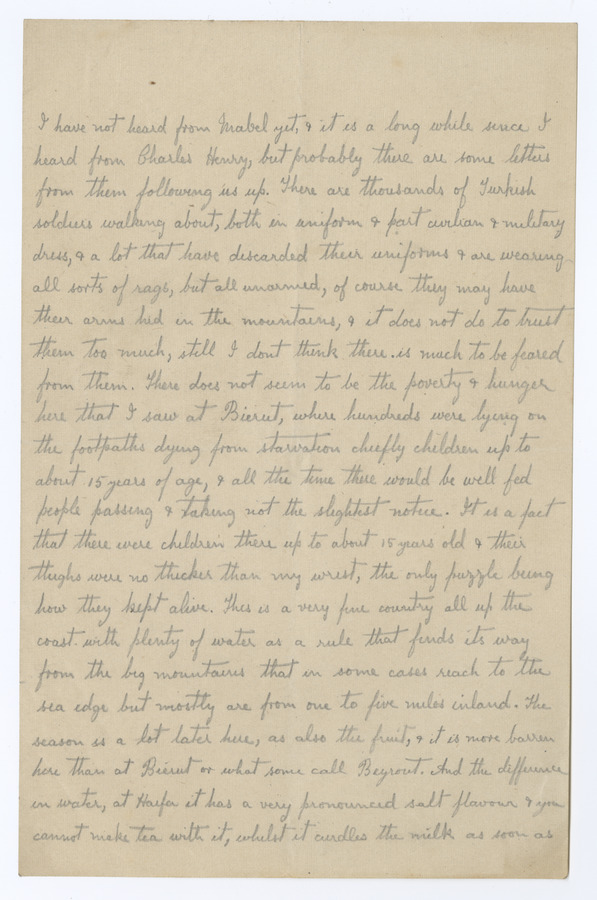 I have not heard from Mabel yet, & it is a long while since I
heard from Charles Henry, but probably there are some letters
from them following us up. There are thousands of Turkish
soldiers walking about, both in uniform & part civilian & military
dress, & a lot that have discarded their uniforms & are wearing
all sorts of rags, but all unarmed, of course they may have
their arms hid in the mountains, & it does not do to trust
them too much, still I dont think there is much to be feared
from them. There does not seem to be the poverty & hunger
here that I saw at Bierut, where hundreds were lying on
the footpaths dying from starvation chiefly children up to
about 15 years of age, & all the time there would be well fed
people passing & taking not the slightest notice. It is a fact
that there were children there up to about 15 years old & their
thighs were no thicker than my wrist, the only puzzle being
how they kept alive. This is a very fine country all up the
coast with plenty of water as a rule that finds its way
from the big mountains that in some cases reach to the
sea edge but mostly are from one to five miles inland. The
season is a lot later here, as also the fruit, & it is more barren
here than at Bierut or what some call Beyrout. And the difference
in water, at Haifa it has a very pronounced salt flavour & you
cannot make tea with it, whilst it curdles the milk as soon as